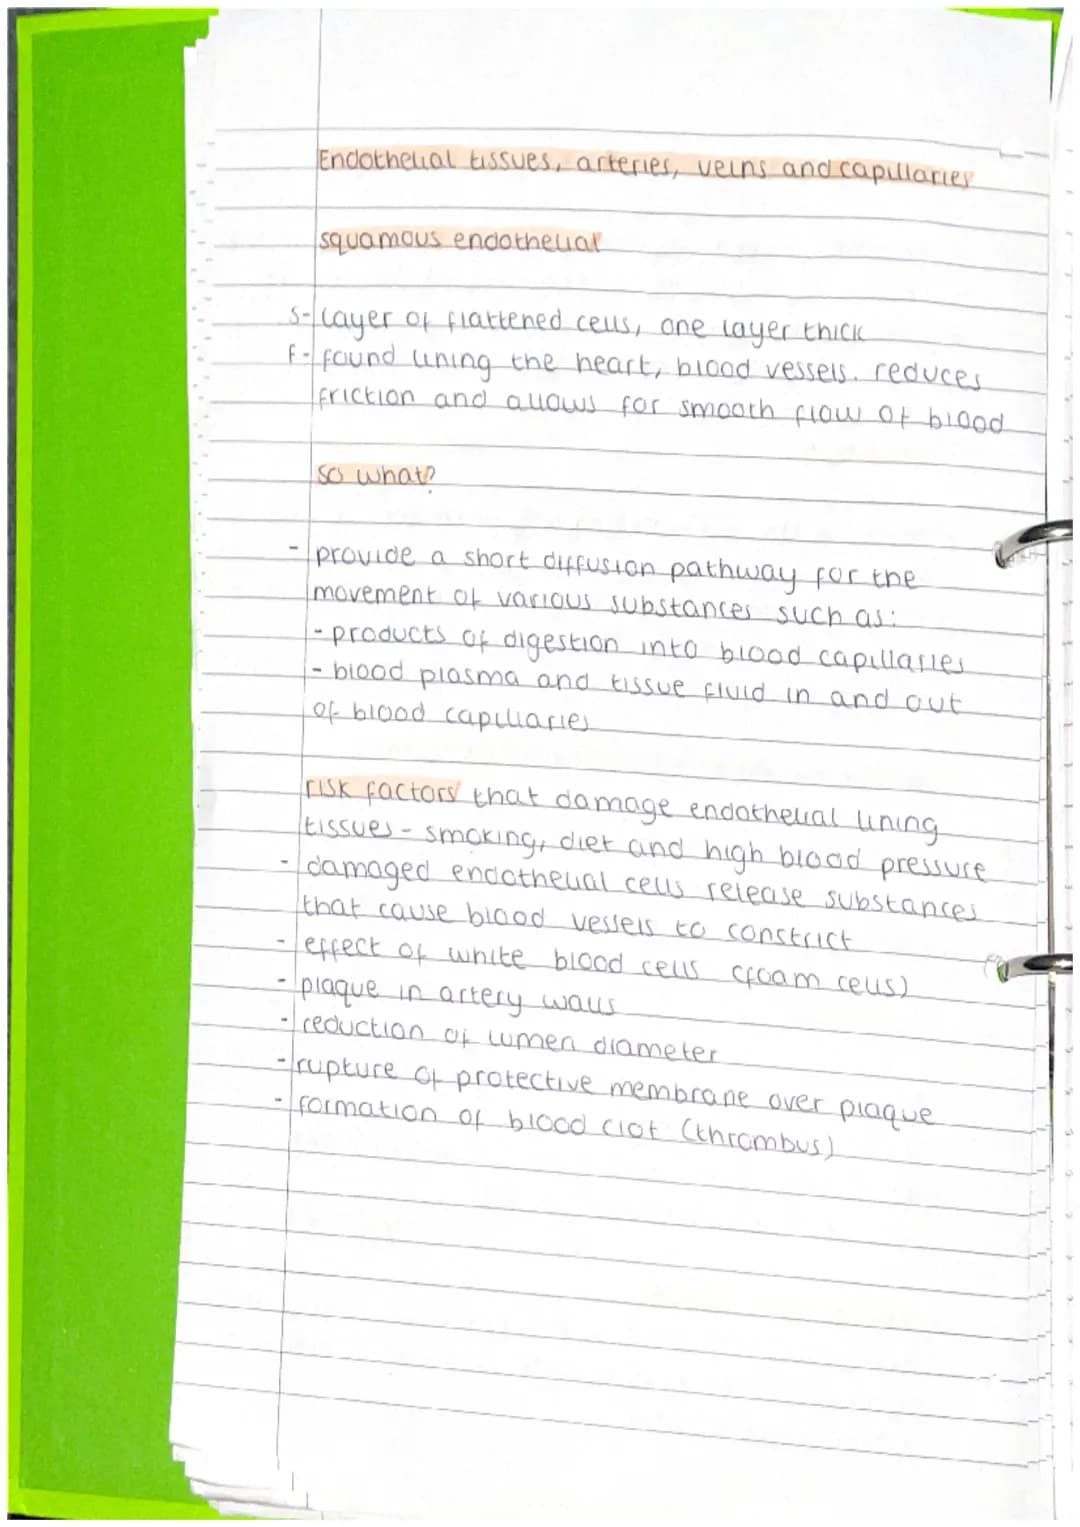 Endothelial tissues, arteries, veins and capillaries
squamous endothelial
S- layer of flattened cells, one layer thick
F- found lining the heart, blood vessels. reduces
friction and allows for smooth flow of blood
so what?
- provide a short diffusion pathway for the
movement of various substances such as:
- products of digestion into blood capillaries
- blood plasma and tissue fluid in and out
of blood capillaries
risk factors that damage endothelial lining
tissues - smoking, diet and high blood pressure
- damaged endothelial cells release substances
that cause blood vessels to constrict
- effect of white blood cells (foam cells)
- plaque in artery walls
- reduction of lumen diameter
- rupture of protective membrane over plaque
- formation of blood clot (thrombus)